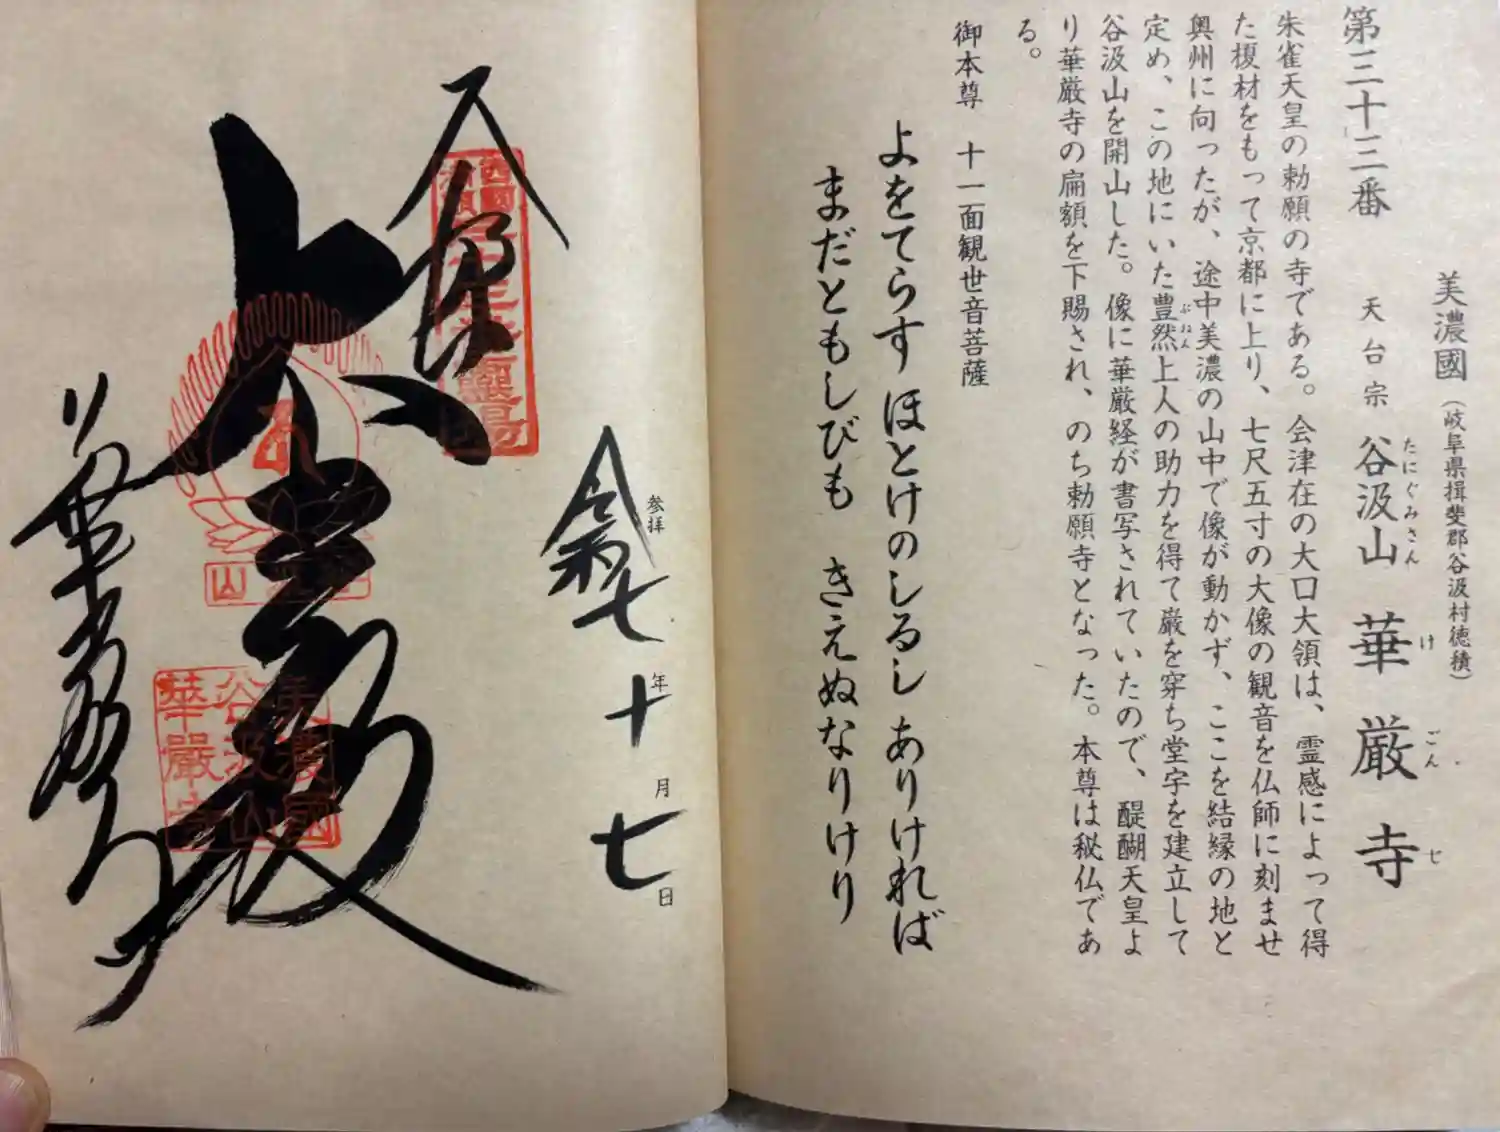 第三十三番
美濃國(岐阜県揖斐郡谷汲村徳積)
天台宗 谷汲山 華厳寺
たにぐみさん
けごん七
朱雀天皇の勅願の寺である。会津在の大口大領は、霊感によって得
た榎材をもって京都に上り、七尺五寸の大像の観音を仏師に刻ませ
奥州に向ったが、途中美濃の山中で像が動かず、ここを結縁の地と
定め、この地にいた豊然上人の助力を得て厳を穿ち堂宇を建立して
ぶねん
谷汲山を開山した。像に華厳経が書写されていたので、醍醐天皇よ
り華厳寺の扁額を下賜され、のち勅願寺となった。本尊は秘仏であ
る。
御本尊 十一面観世音菩薩
よをてらす ほとけのしるし ありければ
まだともしびも きえぬなりけり
参拝
令和七年十月七日
西國
大悲殿
美濃國
谷汲山
華嚴寺
華厳寺